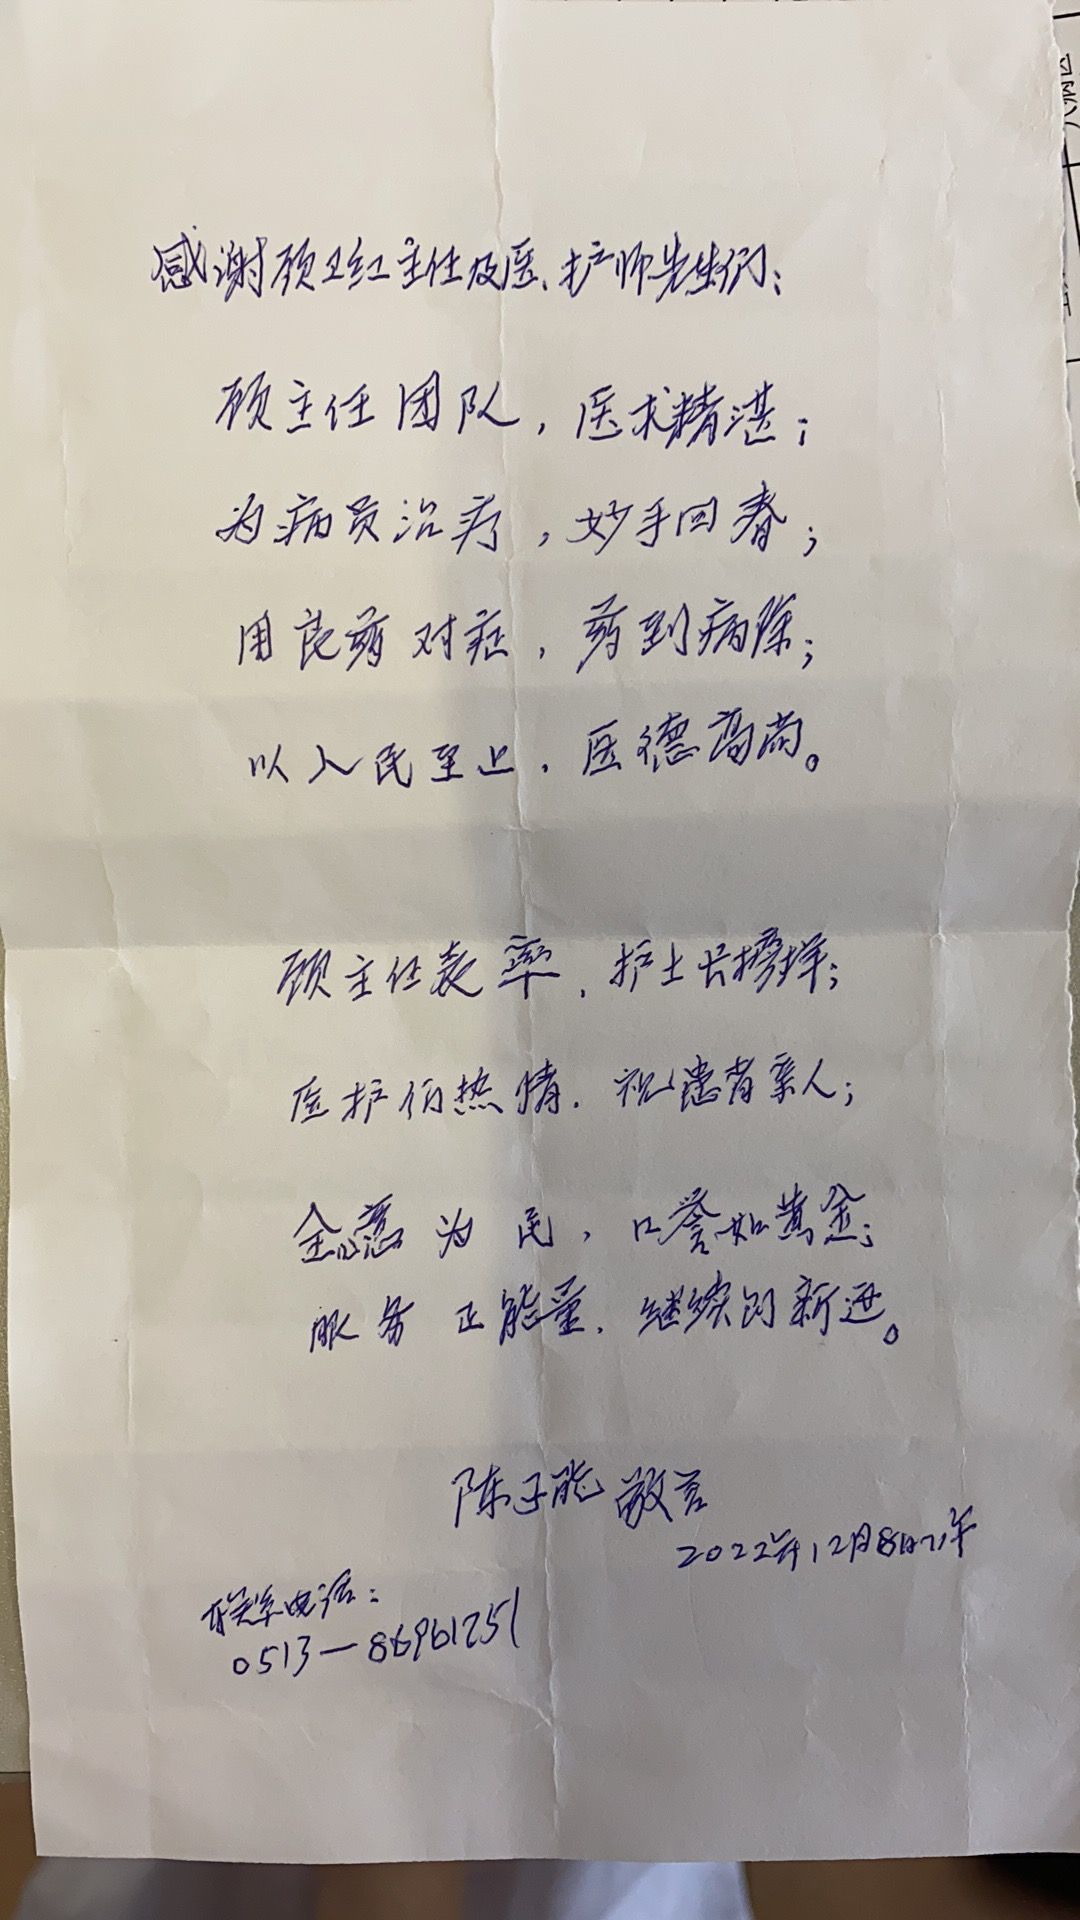 感谢顾卫红主任及医、护师先生们：
顾主任团队，医术精湛；
为病员治疗，妙手回春；
用良药对症，药到病除；
以人民至上，医德高尚。
顾主任表率，护士长榜样；
医护们热情，视患者亲人；
全心愿为民，口誉如黄金；
服务正能量，继续创新进。
陈子能 敬言
2022年12月8日下午
联系电话：
0513—86961251